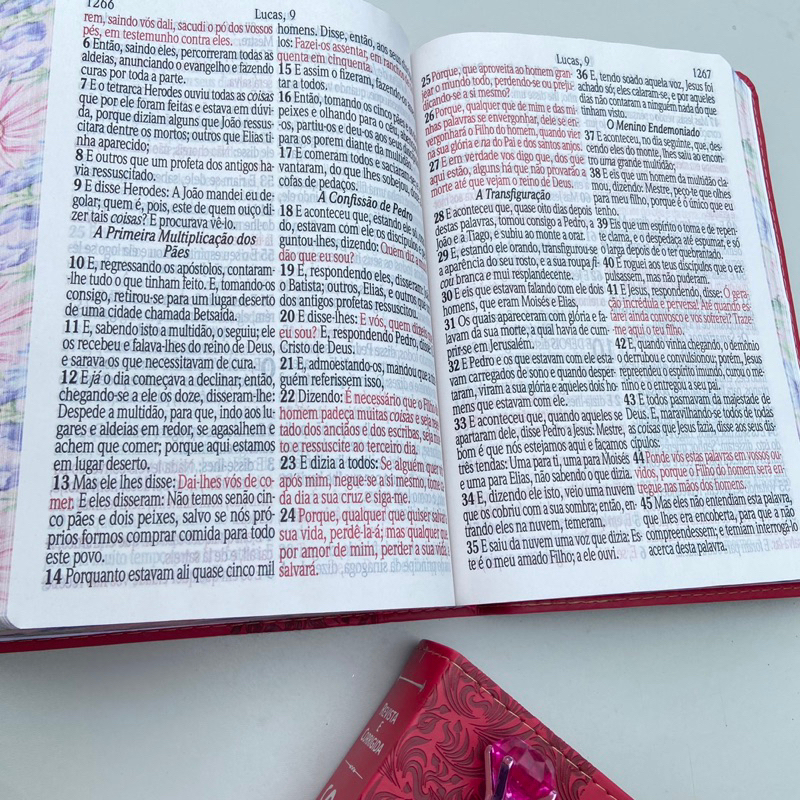 1266
Lucas, 9
rem, saindo vós dali, sacudi o pó dos vossos
pés, em testemunho contra eles.
6 Então, saindo eles, percorreram todas as
aldeias, anunciando o evangelho e fazendo
curas por toda a parte.
7 E o tetrarca Herodes ouviu todas as coisas
que por ele foram feitas e estava em dúvi-
da, porque diziam alguns que João ressus-
citara dentre os mortos; outros que Elias ti-
nha aparecido;
8 E outros que um profeta dos antigos ha-
via ressuscitado.
9 E disse Herodes: A João mandei eu de-
golar; quem é, pois, este de quem ouço di-
zer tais coisas? E procurava vê-lo.
A Primeira Multiplicação dos
Pães
10 E, regressando os apóstolos, contaram-
-lhe tudo o que tinham feito. E, tomando-os
consigo, retirou-se para um lugar deserto
de uma cidade chamada Betsaida.
11 E, sabendo isto a multidão, o seguiu; ele
os recebeu e falava-lhes do reino de Deus,
e sarava os que necessitavam de cura.
12 E já o dia começava a declinar; então,
chegando-se a ele os doze, disseram-lhe:
Despede a multidão, para que, indo aos lu-
gares e aldeias em redor, se agasalhem e
achem que comer; porque aqui estamos
em lugar deserto.
13 Mas ele lhes disse: Dai-lhes vós de co-
mer. E eles disseram: Não temos senão cin-
co pães e dois peixes, salvo se nós pró-
prios formos comprar comida para todo
este povo.
14 Porquanto estavam ali quase cinco mil
homens. Disse, então, aos seus
los: Fazei-os assentar, em ranchos
quenta em cinquenta.
15 E assim o fizeram, fazendo-os
tar a todos.
16 Então, tomando os cinco pães e
peixes e olhando para o céu,
-os, partiu-os e deu-os aos seus
para os porem diante da multidão.
17 E comeram todos e saciaram-
vantaram, do que lhes sobejou,
cofas de pedaços.
A Confissão de Pedro
18 E aconteceu que, estando ele
do, estavam com ele os discípulos
guntou-lhes, dizendo: Quem diz a
dão que eu sou?
19 E, respondendo eles, disseram
o Batista; outros, Elias, e outros que
dos antigos profetas ressuscitou.
20 E disse-lhes: E vós, quem dizeis
eu sou? E, respondendo Pedro, disse
Cristo de Deus.
21 E, admoestando-os, mandou que a
guém referissem isso,
22 Dizendo: É necessário que o Filho
homem padeça muitas coisas e seja
tado dos anciãos e dos escribas, seja
to e ressuscite ao terceiro dia.
23 E dizia a todos: Se alguém quer
após mim, negue-se a si mesmo, tome
da dia a sua cruz e siga-me.
24 Porque, qualquer que quiser salvar
sua vida, perdê-la-á; mas qualquer que,
por amor de mim, perder a sua vida
salvará.
Lucas, 9
1267
25 Porque, que aproveita ao homem gran-
jear o mundo todo, perdendo-se ou preju-
dicando-se a si mesmo?
26 Porque, qualquer que de mim e das mi-
nhas palavras se envergonhar, dele se en-
vergonhará o Filho do homem, quando vier
na sua glória e na do Pai e dos santos anjos.
27 E em verdade vos digo que, dos que
aqui estão, alguns há que não provarão a
morte até que vejam o reino de Deus.
A Transfiguração
28 E aconteceu que, quase oito dias depois
destas palavras, tomou consigo a Pedro, a
João e a Tiago, e subiu ao monte a orar.
29 E, estando ele orando, transfigurou-se
a aparência do seu rosto, e a sua roupa fi-
cou branca e mui resplandecente.
30 E eis que estavam falando com ele dois
homens, que eram Moisés e Elias,
31 Os quais apareceram com glória e fa-
lavam da sua morte, a qual havia de cum-
prir-se em Jerusalém.
32 E Pedro e os que estavam com ele esta-
vam carregados de sono e quando desper-
taram, viram a sua glória e aqueles dois ho-
mens que estavam com ele.
33 E aconteceu que, quando aqueles se
apartaram dele, disse Pedro a Jesus: Mestre,
bom é que nós estejamos aqui e façamos
três tendas: Uma para ti, uma para Moisés
e uma para Elias, não sabendo o que dizia.
34 E, dizendo ele isto, veio uma nuvem
que os cobriu com a sua sombra; então, en-
trando eles na nuvem, temeram.
35 E saiu da nuvem uma voz que dizia: Es-
te é o meu amado Filho; a ele ouvi.
36 E, tendo soado aquela voz, Jesus foi
achado só; eles calaram-se, e por aqueles
dias não contaram a ninguém nada do que
tinham visto.
O Menino Endemoniado
37 E aconteceu, no dia seguinte, que, des-
cendo eles do monte, lhes saiu ao encon-
tro uma grande multidão;
38 E eis que um homem da multidão cla-
mou, dizendo: Mestre, peço-te que olhes
para meu filho, porque é o único que eu
tenho.
39 Eis que um espírito o toma e de repen-
te clama, e o despedaça até espumar, e só
o larga depois de o ter quebrantado.
40 E roguei aos teus discípulos que o ex-
pulsassem, mas não puderam.
41 E Jesus, respondendo, disse: Ó gera-
ção incrédula e perversa! Até quando es-
tarei ainda convosco e vos sofrerei? Traze-
-me aqui o teu filho.
42 E, quando vinha chegando, o demônio
o derrubou e convulsionou; porém, Jesus
repreendeu o espírito imundo, curou o me-
nino e o entregou a seu pai.
43 E todos pasmavam da majestade de
Deus. E, maravilhando-se todos de todas
as coisas que Jesus fazia, disse aos seus dis-
cípulos:
44 Ponde vós estas palavras em vossos ou-
vidos, porque o Filho do homem será en-
tregue nas mãos dos homens.
45 Mas eles não entendiam esta palavra,
que lhes era encoberta, para que a não
compreendessem; e temiam interrogá-lo
acerca desta palavra.
REVISTA
E
CORRIGIDA